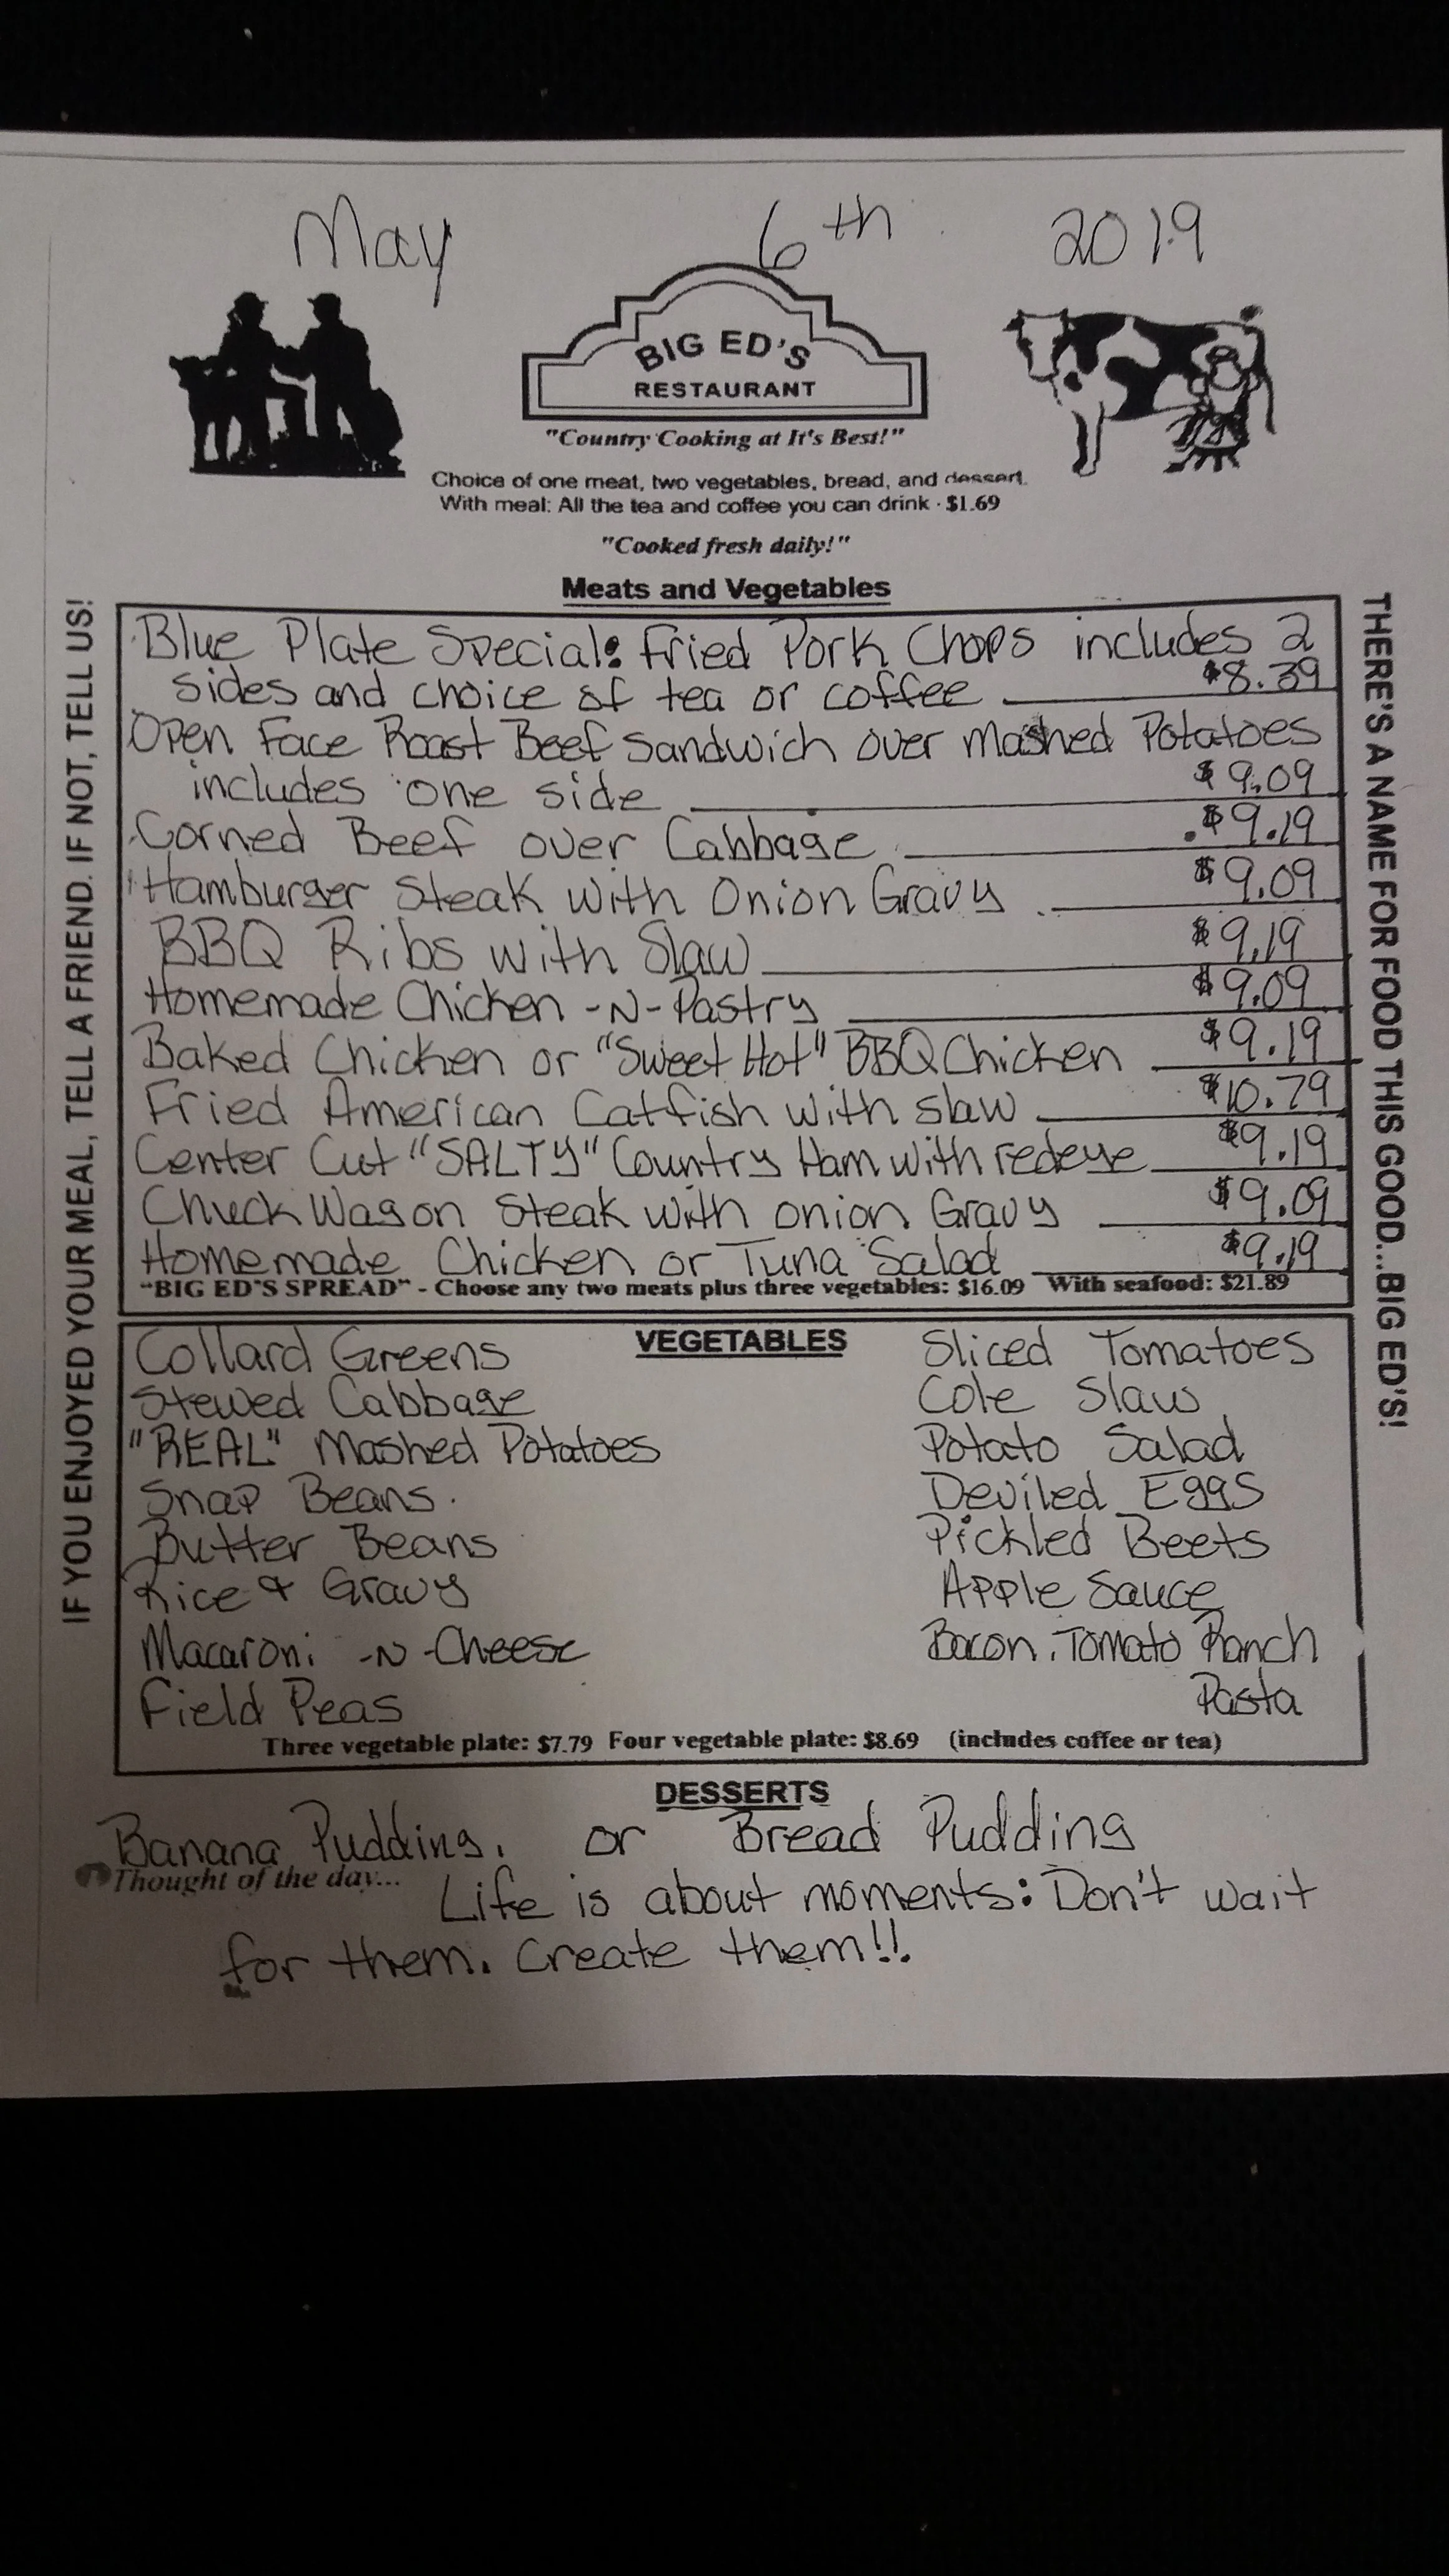 May 6th 2019
BIG ED'S
RESTAURANT
"Country Cooking at It's Best!"
Choice of one meat, two vegetables, bread, and dessert.
With meal: All the tea and coffee you can drink · $1.69
"Cooked fresh daily!"
Meats and Vegetables
IF YOU ENJOYED YOUR MEAL, TELL A FRIEND. IF NOT, TELL US!
THERE'S A NAME FOR FOOD THIS GOOD...BIG ED'S!
Blue Plate Special: Fried Pork Chops includes 2
sides and choice of tea or coffee $8.39
Open Face Roast Beef Sandwich over Mashed Potatoes
includes one side $9.09
Corned Beef over Cabbage $9.19
Hamburger Steak with Onion Gravy $9.09
BBQ Ribs with Slaw $9.19
Homemade Chicken -N- Pastry $9.09
Baked Chicken or "Sweet Hot" BBQ Chicken $9.19
Fried American Catfish with slaw $10.79
Center Cut "SALTY" Country Ham with redeye $9.19
Chuck Wagon Steak with onion Gravy $9.09
Homemade Chicken or Tuna Salad $9.19
"BIG ED'S SPREAD" - Choose any two meats plus three vegetables: $16.09 With seafood: $21.89
VEGETABLES
Collard Greens
Stewed Cabbage
"REAL" Mashed Potatoes
Snap Beans
Butter Beans
Rice & Gravy
Macaroni -N- Cheese
Field Peas
Sliced Tomatoes
Cole Slaw
Potato Salad
Deviled Eggs
Pickled Beets
Apple Sauce
Bacon, Tomato Ranch
Pasta
Three vegetable plate: $7.79 Four vegetable plate: $8.69 (includes coffee or tea)
DESSERTS
Banana Pudding, or Bread Pudding
Thought of the day...
Life is about moments: Don't wait
for them. Create them!!